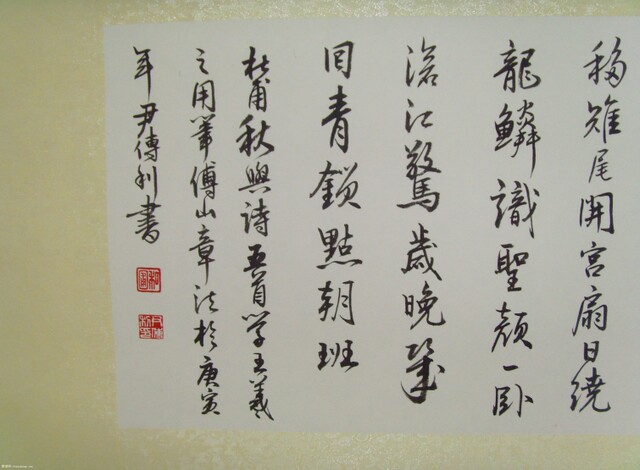 移雉尾開宮扇日繞
龍鱗識聖顏一卧
滄江驚歲晚幾
回青鎖點朝班
杜甫秋興詩五首学王羲
之用筆傅山章法於庚寅
年尹傳利書